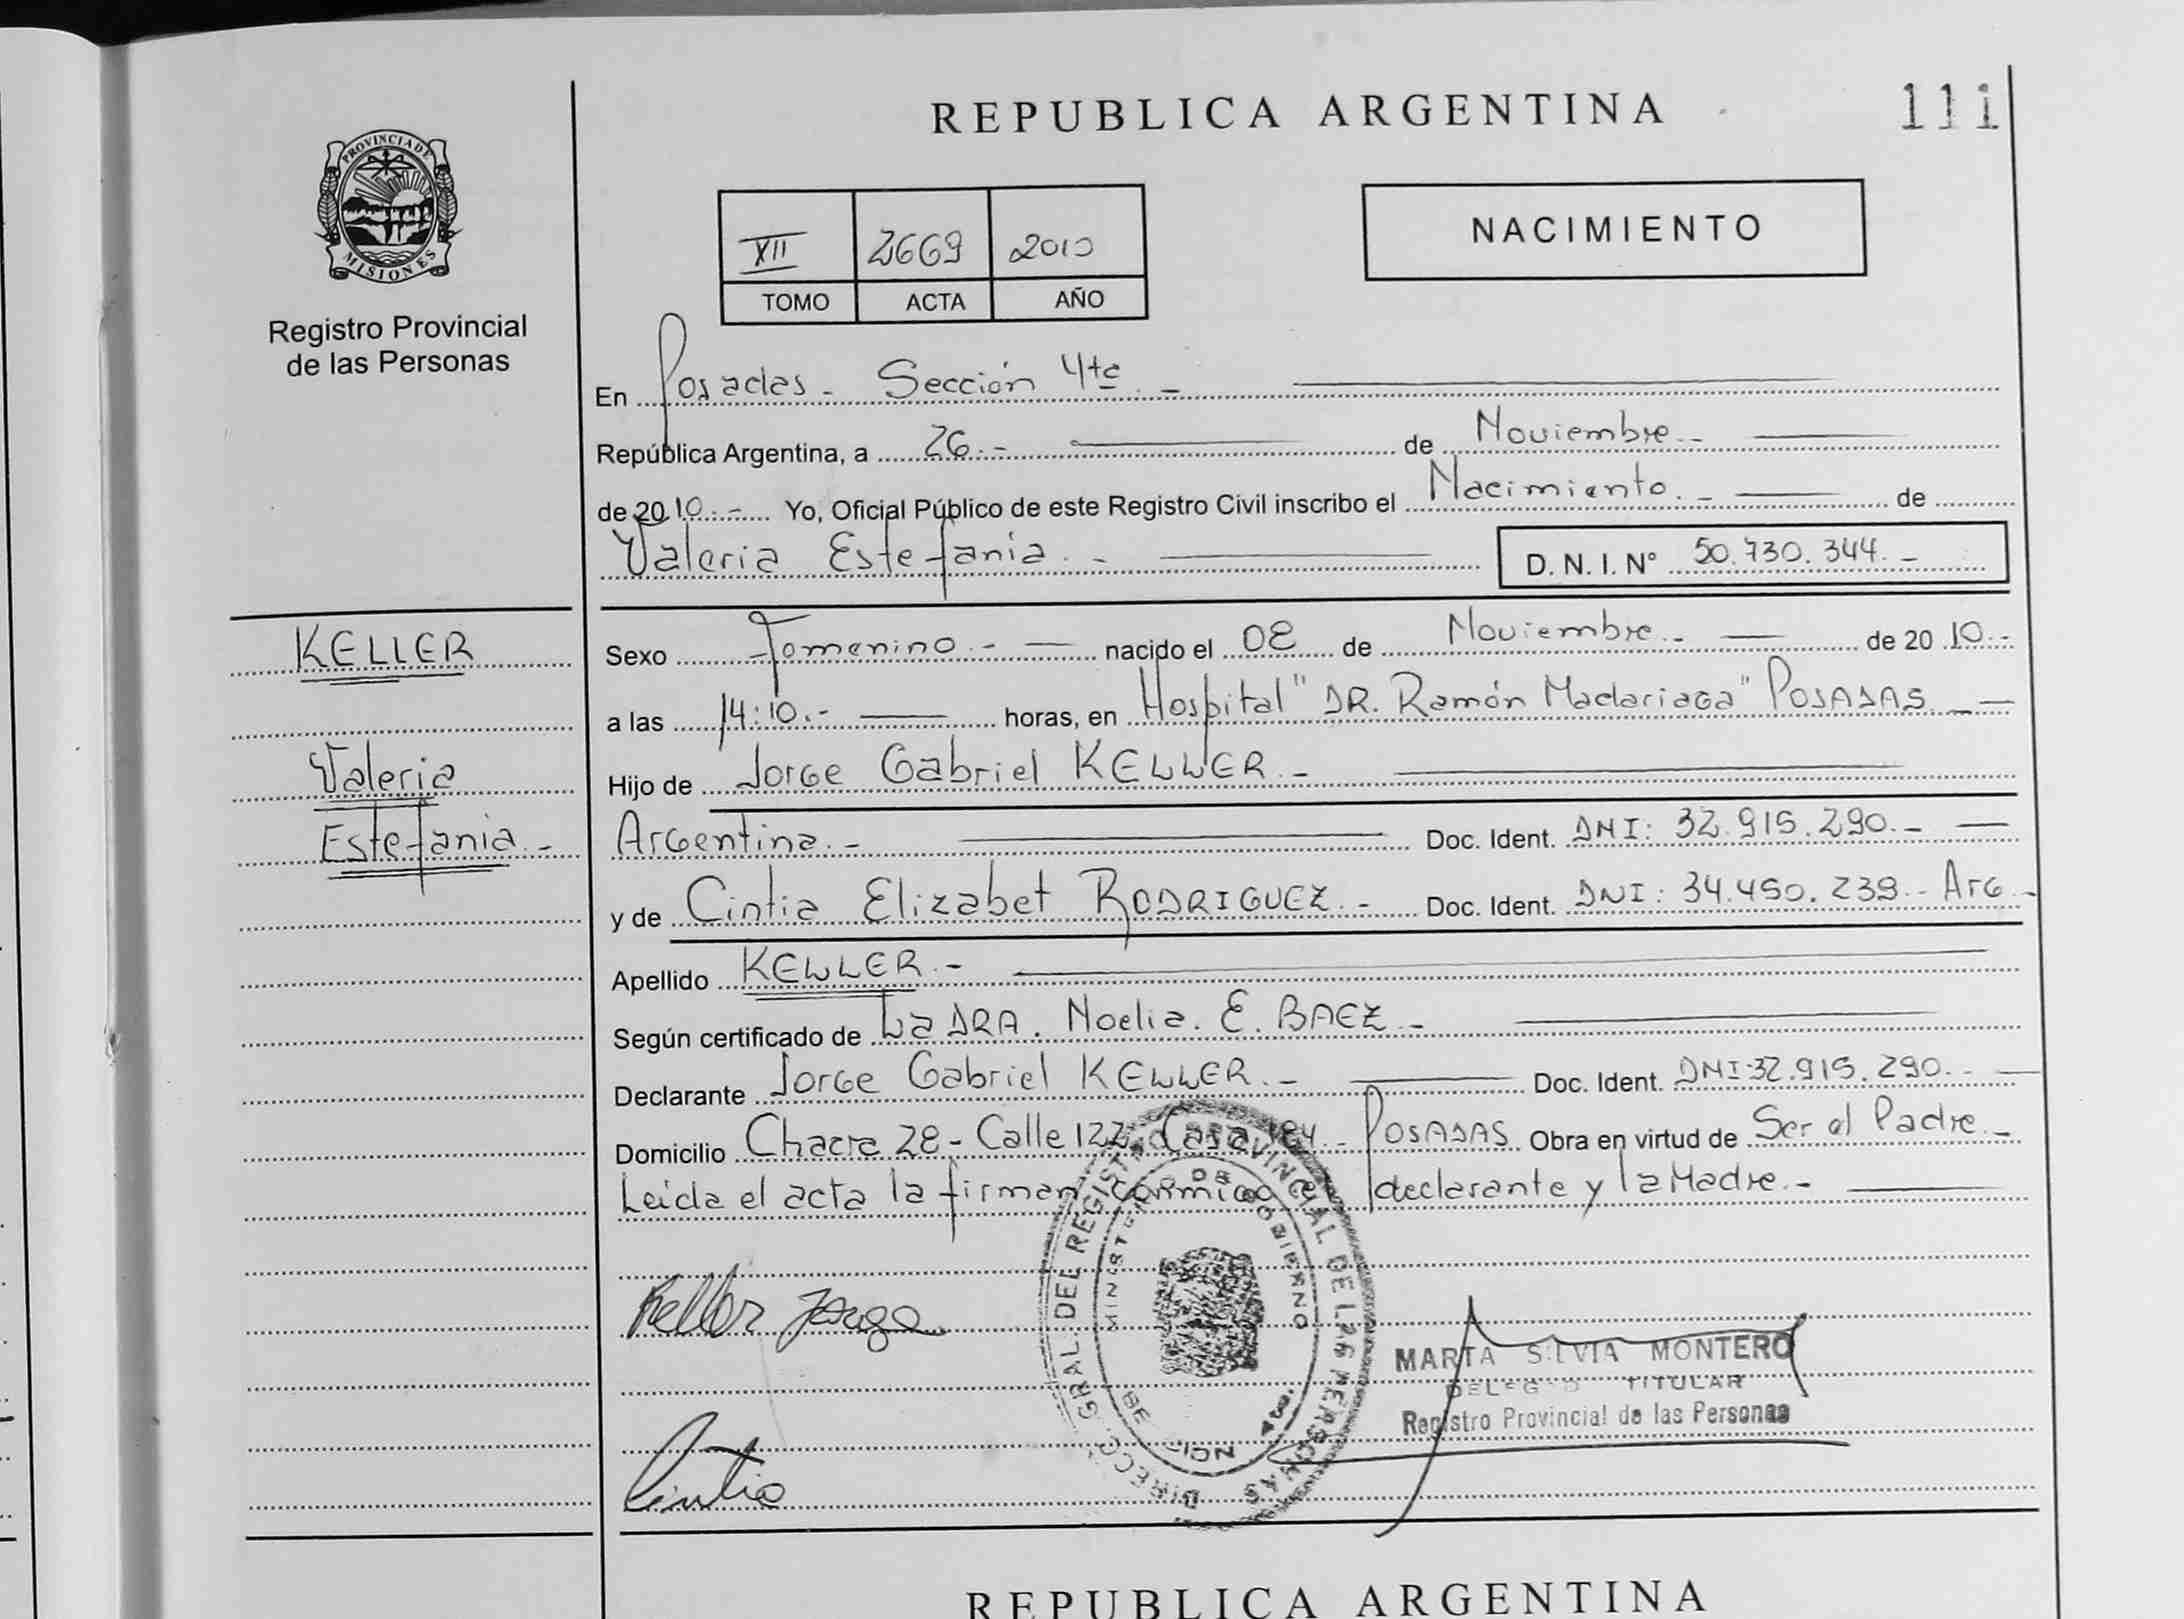 REPUBLICA ARGENTINA
111
PROVINCIA DE
MISIONES
Registro Provincial
de las Personas
XII 2669 2010
TOMO ACTA AÑO
NACIMIENTO
En Posadas - Sección 4ta. -
República Argentina, a 26.- de Noviembre.-
de 2010.- Yo, Oficial Público de este Registro Civil inscribo el Nacimiento.- de
Valeria Estefania.- D. N. I. N° 50.730.344.-
KELLER
Valeria
Estefania.-
Sexo Femenino.- nacido el 08 de Noviembre.- de 2010.-
a las 14:10.- horas, en Hospital "DR. Ramón Madariaga" POSADAS.-
Hijo de Jorge Gabriel KELLER.-
Argentina.- Doc. Ident. DNI: 32.915.290.-
y de Cintia Elizabet RODRIGUEZ.- Doc. Ident. DNI: 34.450.239.- Arg.-
Apellido KELLER.-
Según certificado de La DRA. Noelia. E. BAEZ.-
Declarante Jorge Gabriel KELLER.- Doc. Ident. DNI:32.915.290.-
Domicilio Chacra 28- Calle 122- Casa POSADAS. Obra en virtud de Ser el Padre.-
Leida el acta la firman conmigo el declarante y la Madre.-
DIRECC. GRAL. DEL REGISTRO PROVINCIAL DE LAS PERSONAS
MINISTERIO DE GOBIERNO
Keller Jorge
Cintia
MARTA SILVIA MONTERO
DELEGADO TITULAR
Registro Provincial de las Personas
REPUBLICA ARGENTINA